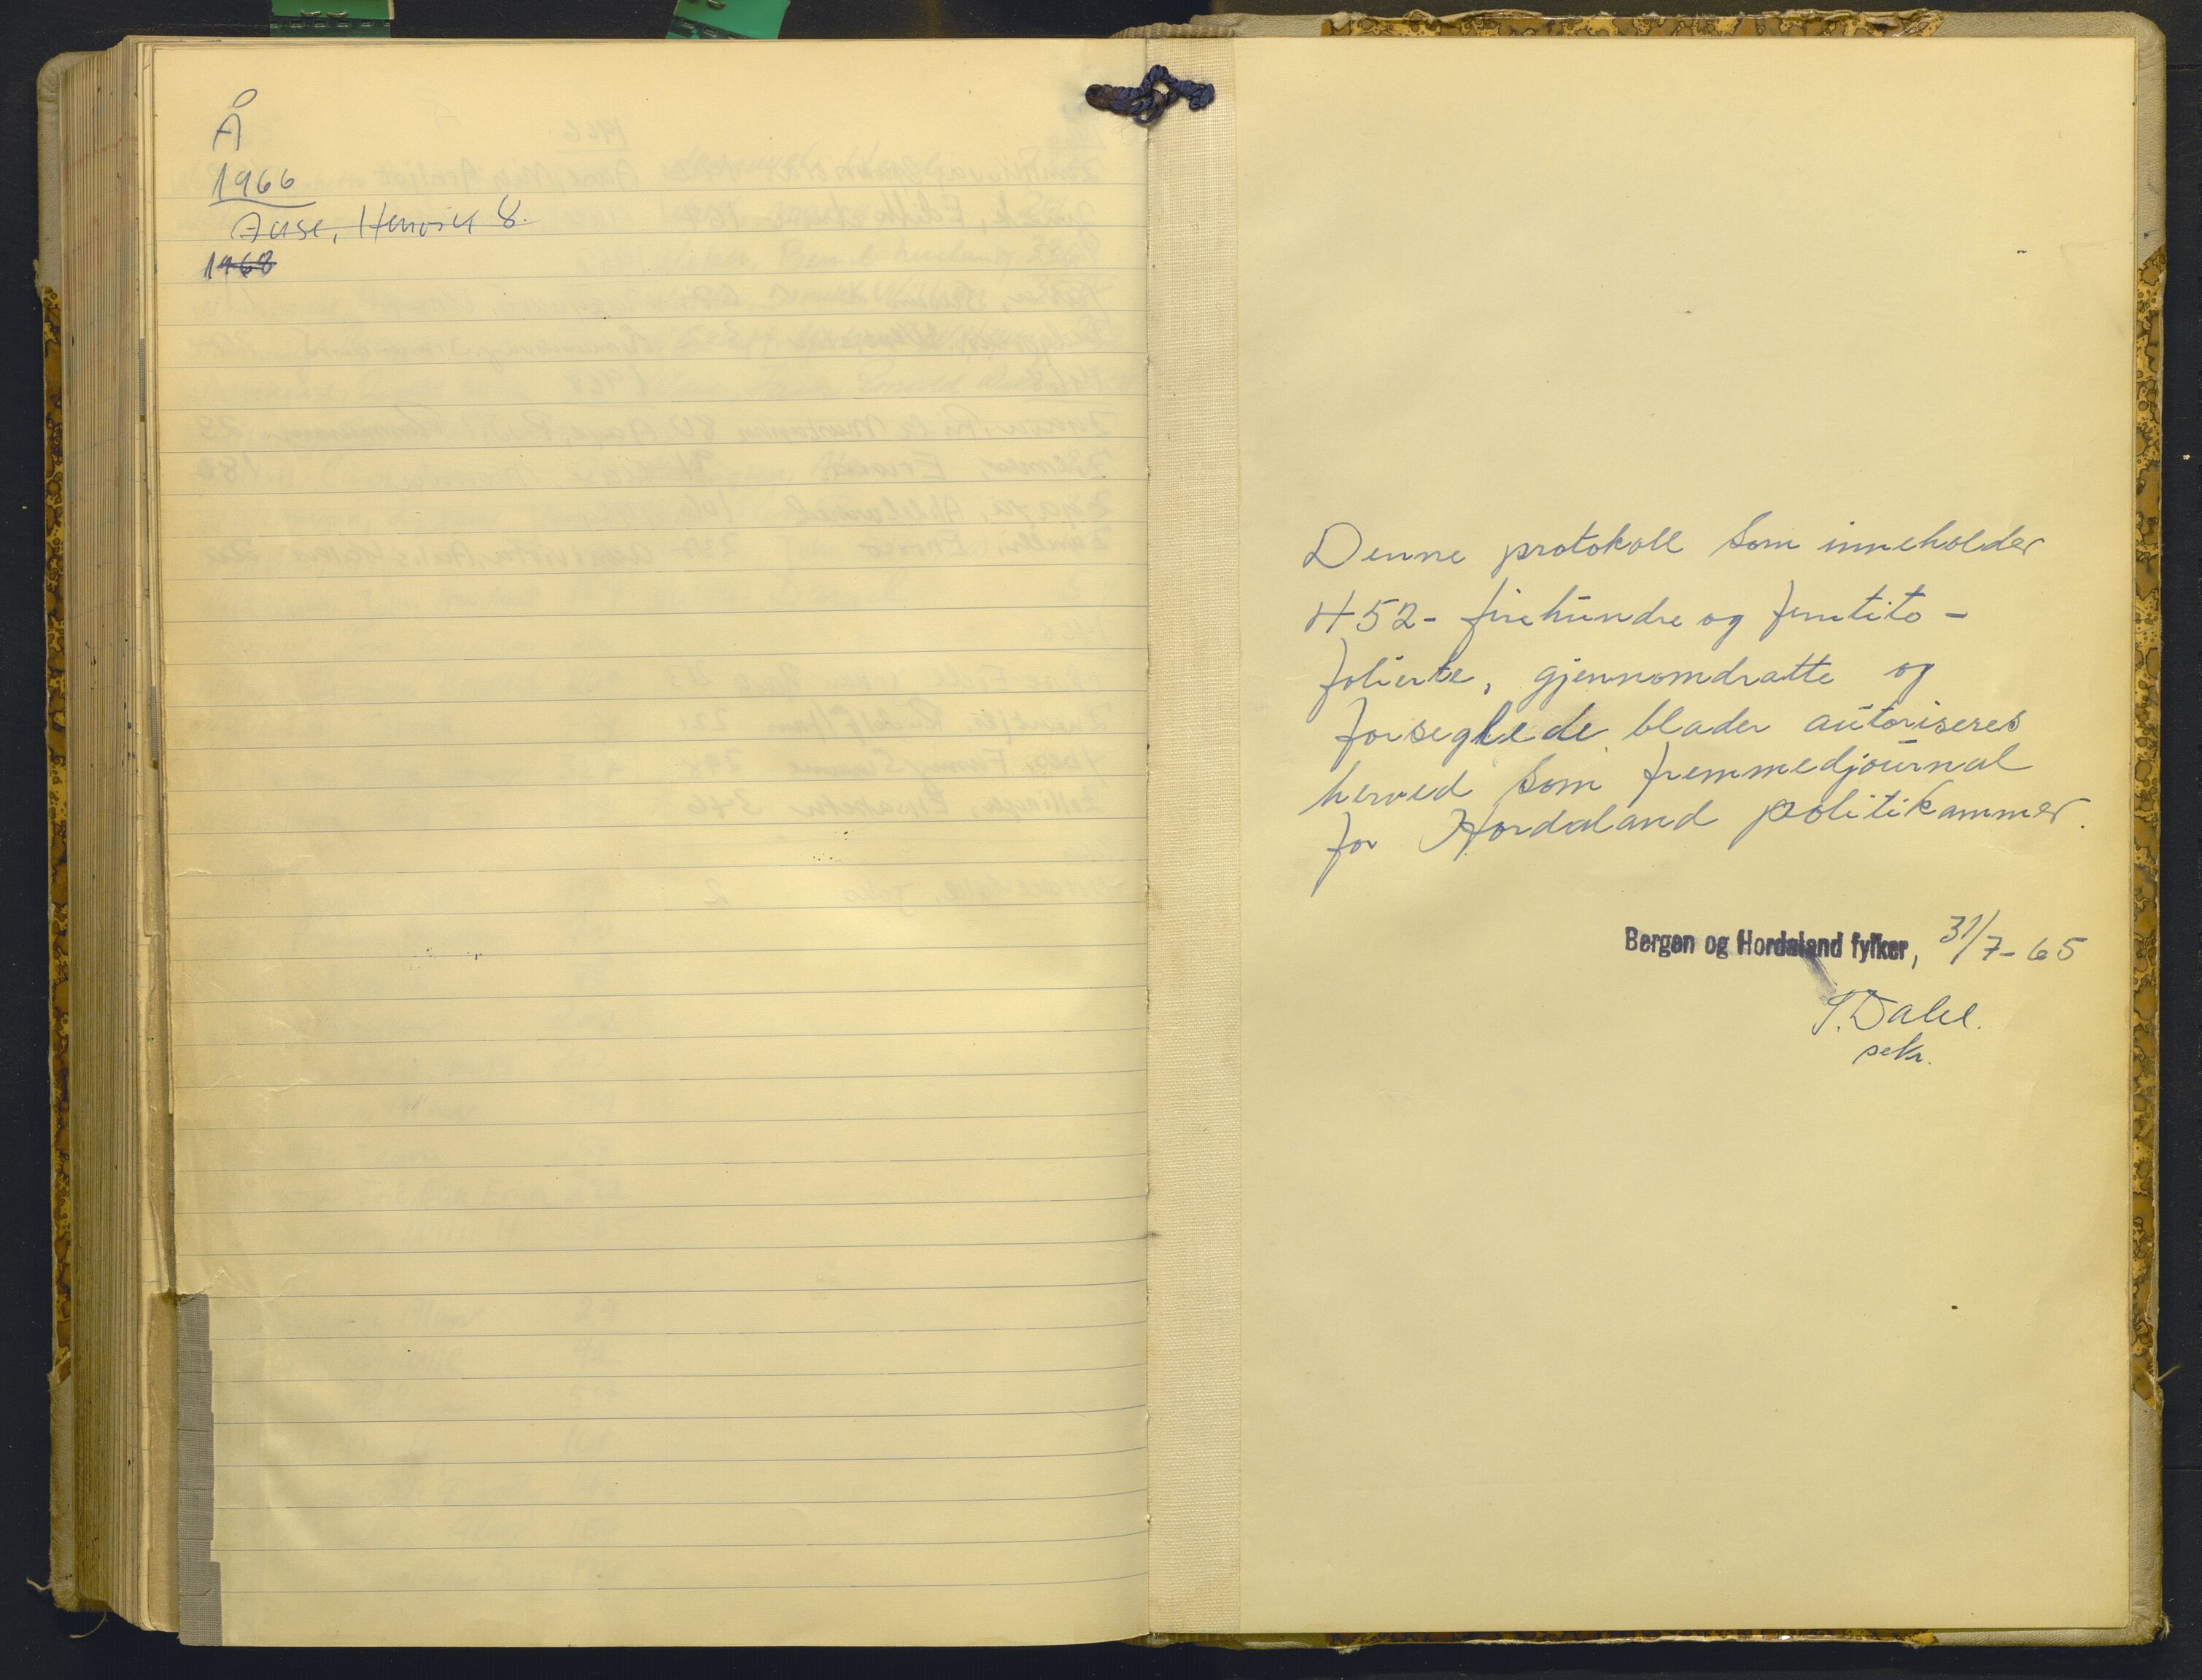 Å
1966
Aase, Henrik 8.
1968
Denne protokoll som inneholder
452- firehundre og femtito -
folierte, gjennomdratte og
forseglede blader autoriseres
herved som fremmedjournal
for Hordaland politikammer.
Bergen og Hordaland fylker, 31/7-65
S. Dahl.
sekr.